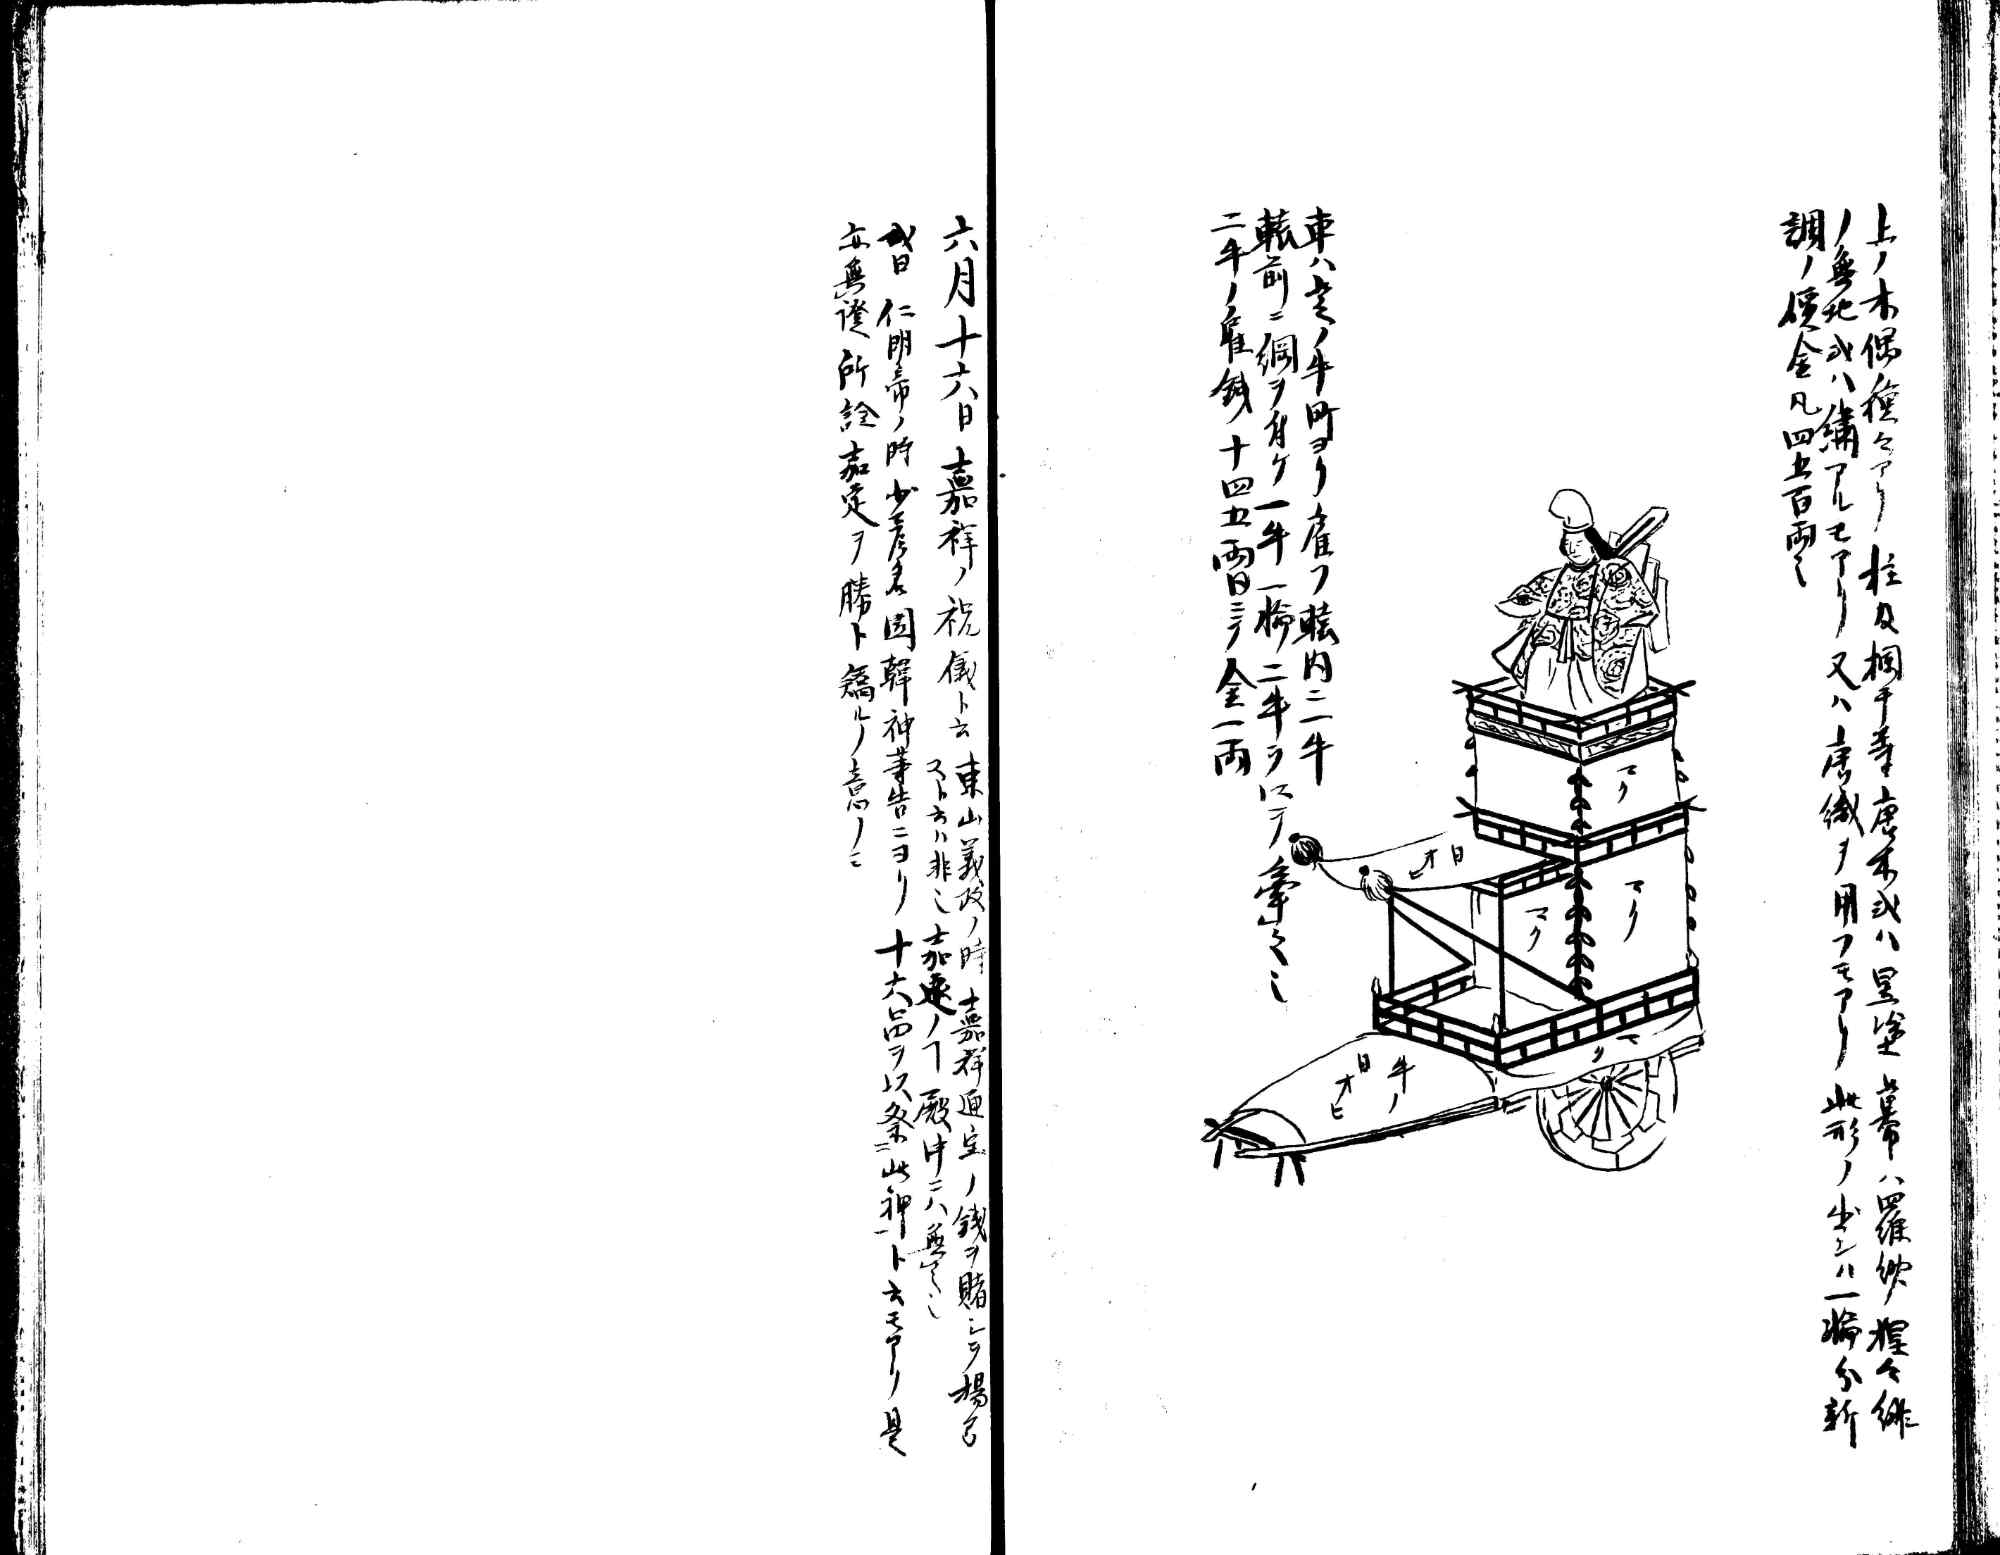 上ノ木偶種々アリ柱及欄干等唐木或ハ黒塗上幕ハ四羅紗猩々緋
ノ無地或ハ繍アルモアリ又ハ唐織ヲ用フモアリ此形ノ出シハ一輛分新
調ノ價金凡四五百両也
マク
マク
マク
日オヒ
マク
牛ノ
日オヒ
車ハ芝ノ牛町ヨリ雇フ轅内ニ一牛
轅前ニ綱ヲ付ケ一牛一輛二牛ヲ以テ牽之也
二牛ノ雇銭十四五両昔日ニテ金一両
六月十六日嘉祥ノ祝儀ト云東山義政ノ時嘉祥通宝ノ銭ヲ賭シテ楊弓
スト云ハ非也嘉通ノ﹁殿中ニハ無之也
或曰仁明帝ノ時少彦名園韓神等告ニヨリ十六品ヲ以祭二此神一ト云モアリ是
亦無證所詮嘉定ヲ勝ト縞ルノ意ノミ